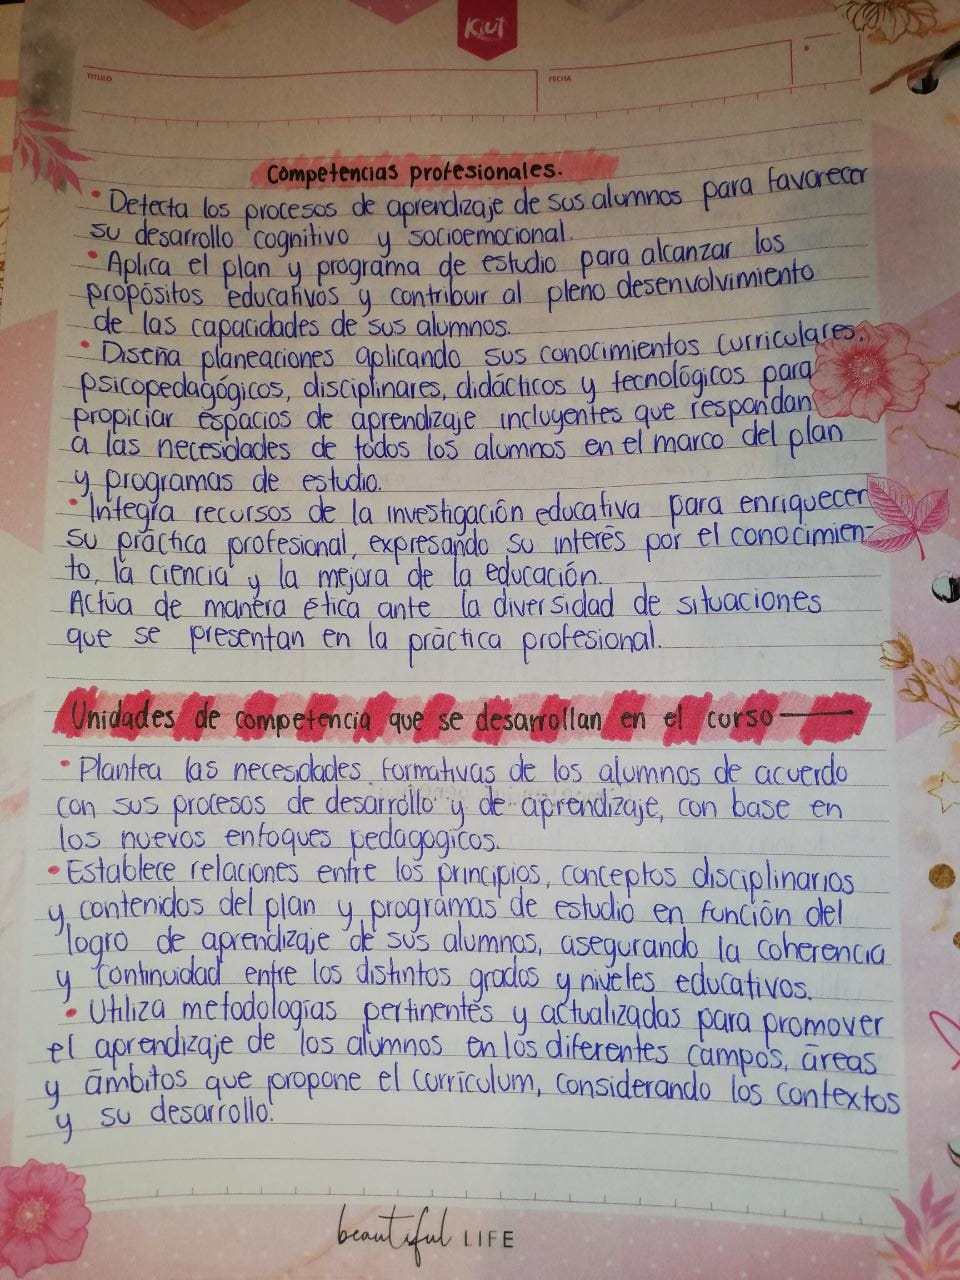 Kiut
TITULO
FECHA
Competencias profesionales.
• Detecta los procesos de aprendizaje de sus alumnos para favorecer
su desarrollo cognitivo y socioemocional.
• Aplica el plan y programa de estudio para alcanzar los
propósitos educativos y contribuir al pleno desenvolvimiento
de las capacidades de sus alumnos.
• Diseña planeaciones aplicando sus conocimientos curriculares,
psicopedagógicos, disciplinares, didácticos y tecnológicos para
propiciar espacios de aprendizaje incluyentes que respondan
a las necesidades de todos los alumnos en el marco del plan
y programas de estudio.
• Integra recursos de la investigación educativa para enriquecer
su práctica profesional, expresando su interés por el conocimien-
to, la ciencia y la mejora de la educación.
Actúa de manera ética ante la diversidad de situaciones
que se presentan en la práctica profesional.
Unidades de competencia que se desarrollan en el curso
• Plantea las necesidades formativas de los alumnos de acuerdo
con sus procesos de desarrollo y de aprendizaje, con base en
los nuevos enfoques pedagogicos.
• Establece relaciones entre los principios, conceptos disciplinarios
y contenidos del plan y programas de estudio en función del
logro de aprendizaje de sus alumnos, asegurando la coherencia
y continuidad entre los distintos grados y niveles educativos.
• Utiliza metodologías pertinentes y actualizadas para promover
el aprendizaje de los alumnos en los diferentes campos, áreas
y ámbitos que propone el currículum, considerando los contextos
y su desarrollo.
beautiful LIFE